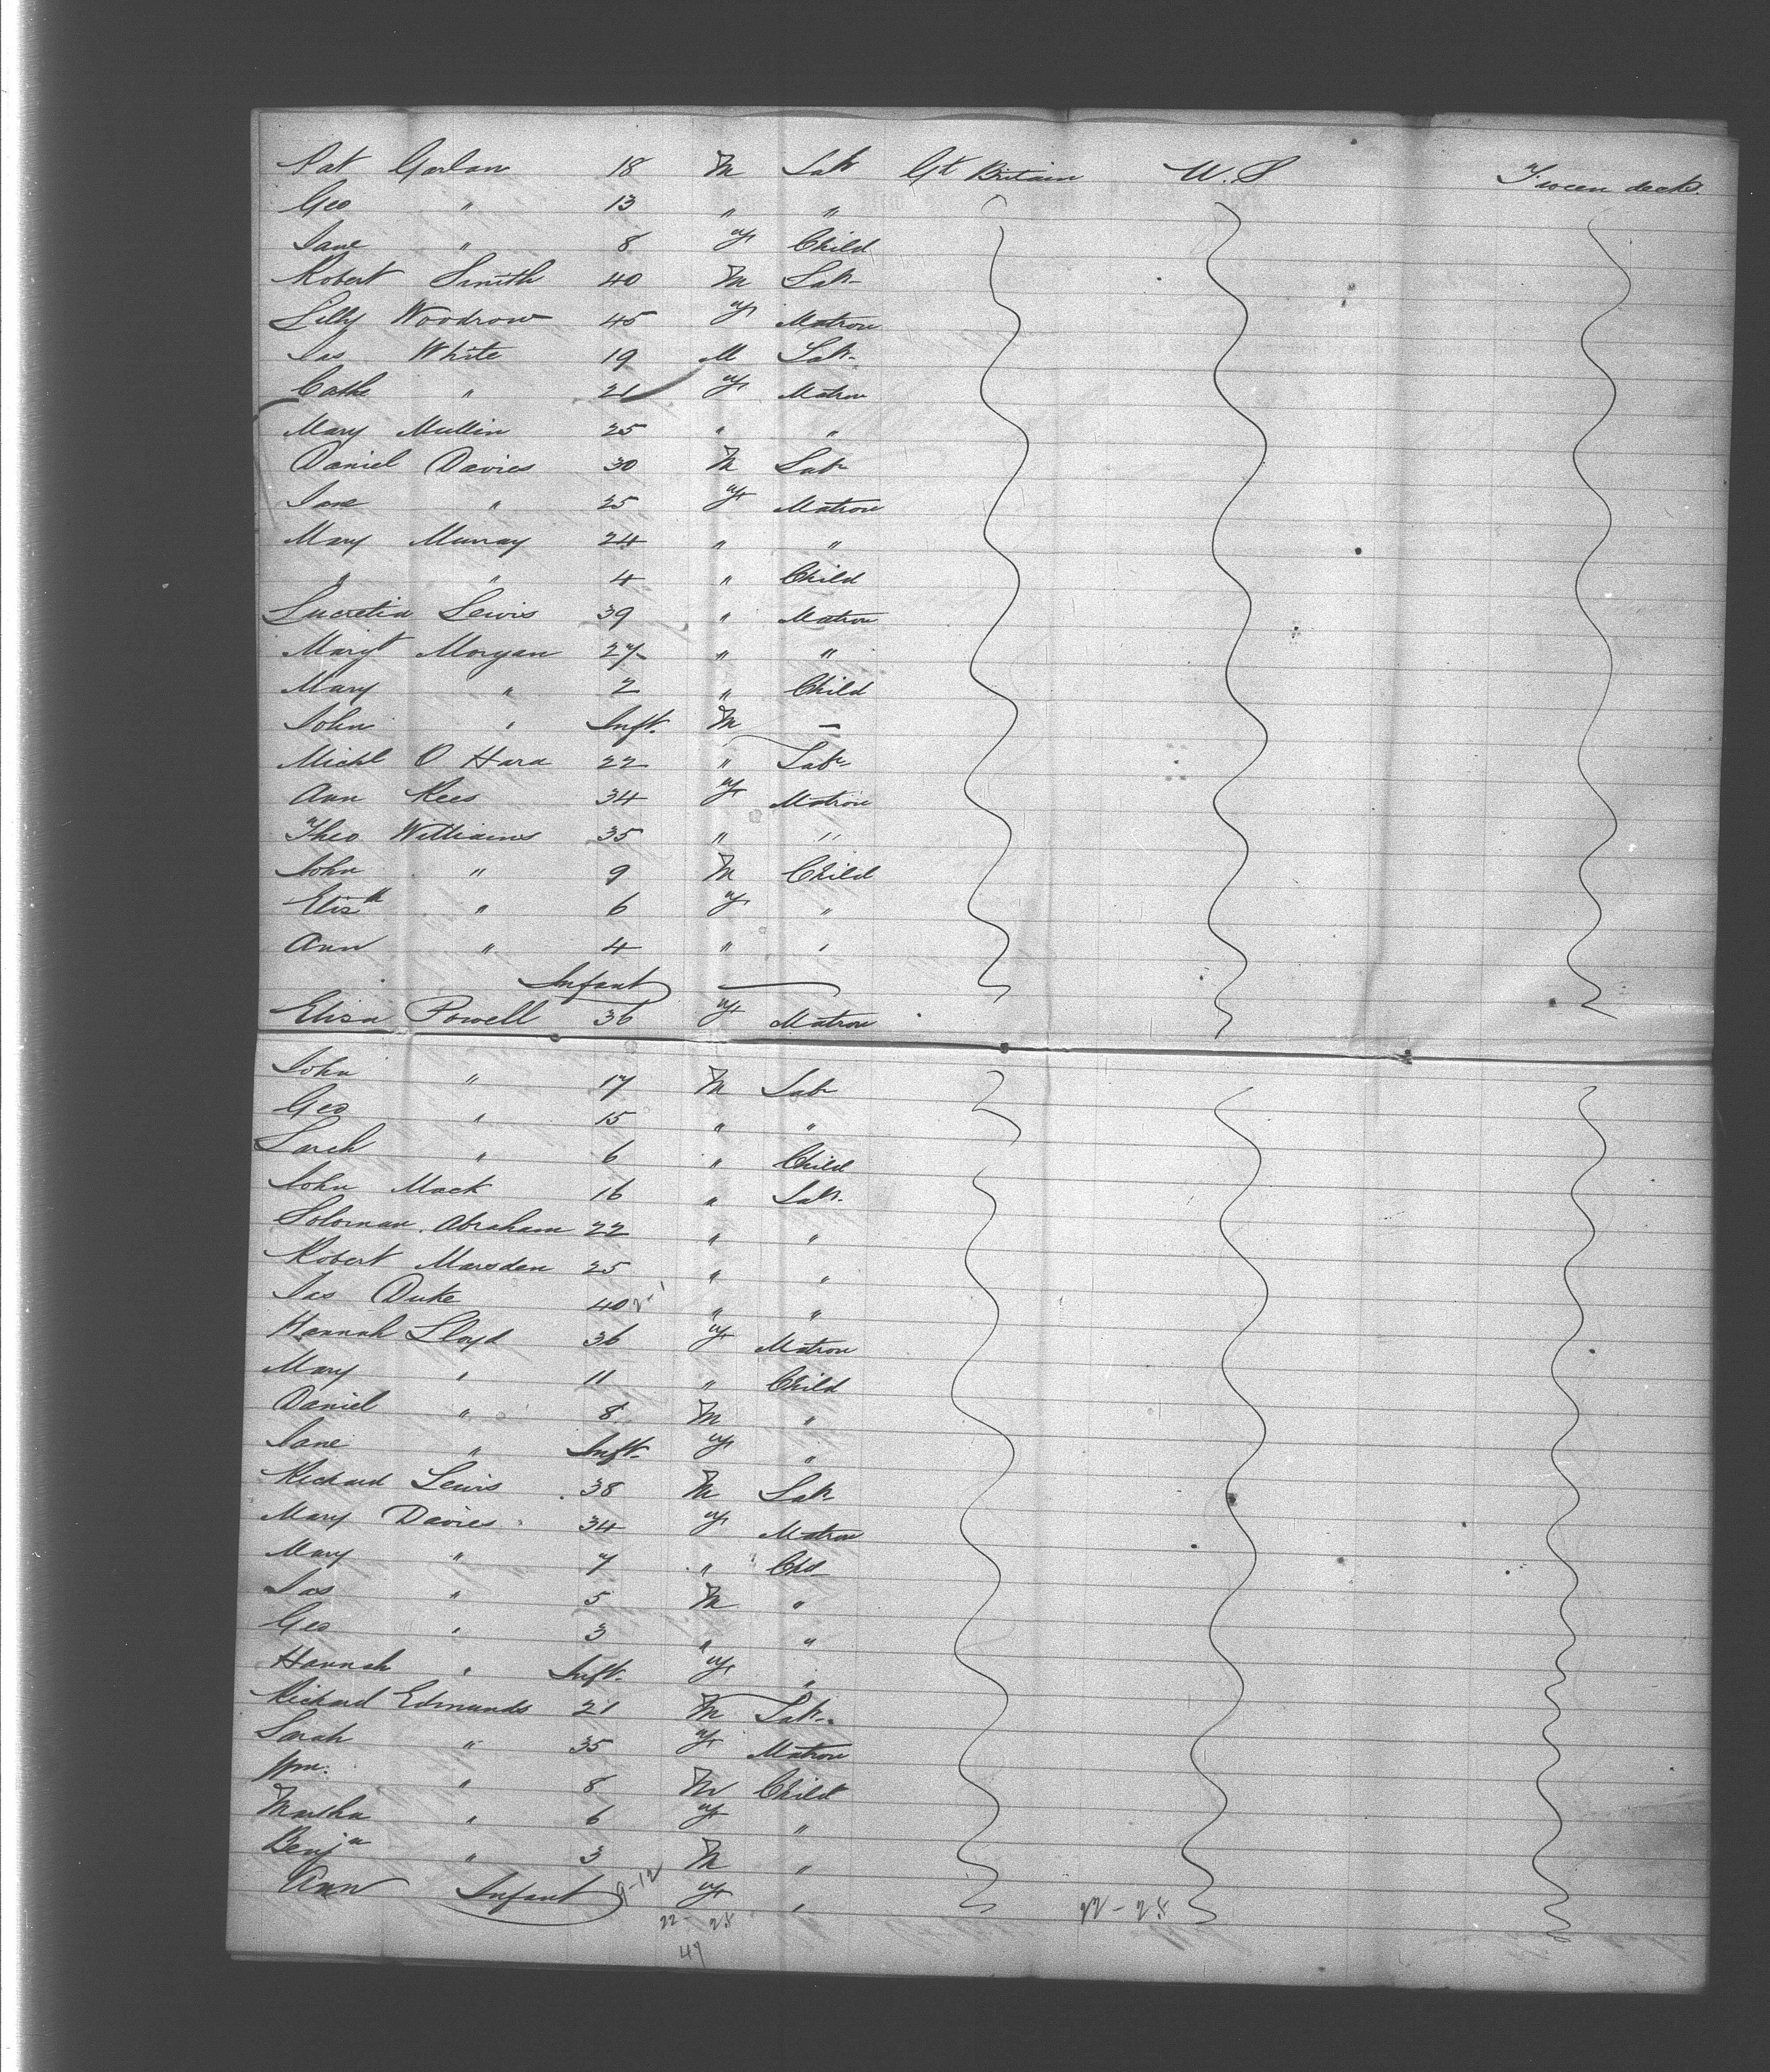 Pat Garlan 18 M Labr Gt Britain U.S Tween decks.
Geo " 13 " "
Jane " 8 F Child
Robert Smith 40 M Labr
Lilly Woodrow 45 F Matron
Jas White 19 M Labr
Cathe " 21 F Matron
Mary Mullin 25 " "
Daniel Davies 30 M Labr
Jane " 25 F Matron
Mary Murray 24 " "
" " 4 " Child
Lucretia Lewis 39 " Matron
Margt Morgan 27 " "
Mary " 2 " Child
John " Inft. M —
Michl O Hara 22 " Labr
Ann Rees 34 F Matron
Theo Williams 35 " "
John " 9 M Child
Elizth " 6 F "
Ann " 4 " "
Infant
Eliza Powell 36 F Matron
John " 17 M Labr
Geo " 15 " "
Sarah " 6 " Child
John Mack 16 " Labr
Soloman Abraham 22 " "
Robert Marsden 25 " "
Jas Duke 40 " "
Hannah Lloyd 36 F Matron
Mary " 11 " Child
Daniel " 8 M "
Jane " Inft. F "
Richard Lewis 38 M Labr
Mary Davies 34 F Matron
Mary " 7 " Chd
Jas " 5 M "
Geo " 3 " "
Hannah " Inft. F "
Richard Edmunds 21 M Labr
Sarah " 35 F Matron
Wm. " 8 M Child
Martha " 6 F "
Benjn " 3 M "
Ann Infant 9-12 F "
22 - 25 22 - 25
47